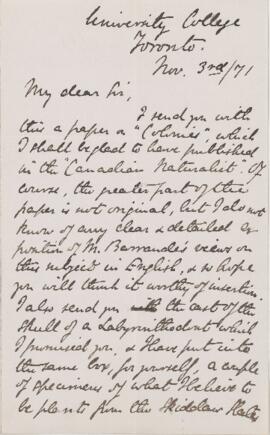 University College
Toronto.
Nov. 3rd/71
My dear Sir,
I send you with
this a paper on "Colonies", which
I shall be glad to have published
in the "Canadian Naturalist". Of
course, the greater part of this
paper is not original, but I do not
know of any clear & detailed ex-
position of M. Barrande's views on
this subject in English, & so hope
you will think it worthy of insertion.
I also send you the cast of the
skull of a Labyrinthodont which
I promised you, & I have put into
the same box, for yourself, a couple
of specimens of what I believe to
be plants from the Skiddaw Slates